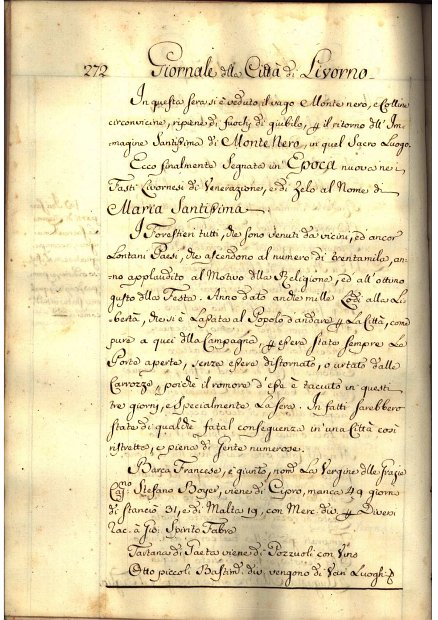 272 Giornale dlla Città di Livorno
In questa sera si è veduto il vago Monte nero, e Colline
circonvicine, ripiene di fuochi di giubilo, p il ritorno dll' Im-
magine Santissima di Monte Nero, in quel Sacro Luogo.
Ecco finalmente Segnata un' Epoca nuova nei
Fasti Livornesi di Venerazione, e di Zelo al Nome di
Maria Santissima
I Forestieri tutti, che sono venuti da vicini, ed ancor
Lontani Paesi, che ascendono al numero di trentamila, an-
no applaudito al Motivo dlla Religione, ed all' ottimo
gusto dlla Festa. Anno dato anche mille Lodi alla Li-
bertà, che si è Lasciata al Popolo d'andare p La Città, come
pure a quei dlla Campagna, p essere stato sempre Le
Porte aperte, senza essere distornato, o urtato dalle
Carrozze, poiche il romore d' esse è taciuto in questi
tre giorni, e Specialmente La sera. In fatti sarebbero
state di qualche fatal conseguenza in una Città così
ristretta, e piena di Gente numerosa.
Barca Francese, è giunto, nom.ª La Vergine dlle Grazie
Capno: Stefano Boyer, viene di Cipro, manca 49 giorni
di stancio 31, e di Malta 19, con Merc. div. p Diversi
Rac. à Gio: Spirito Fabre
Tartana di Gaeta viene di Pozzuoli con Vino
Otto piccoli Bastim. div. vengono di Vari Luoghi